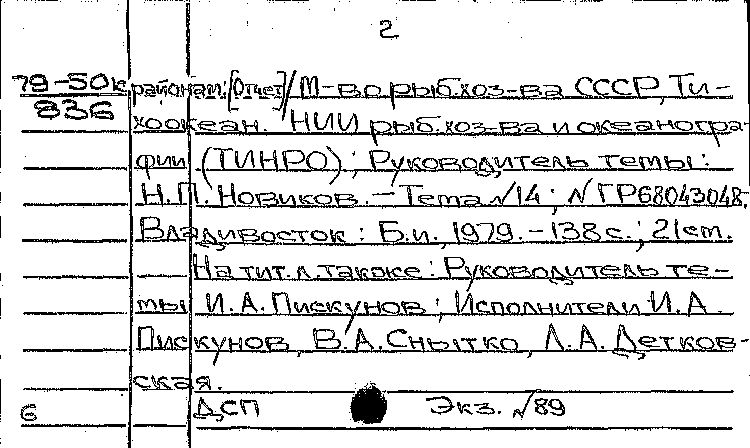 2
79-50к районам: [Отчет]/М-во рыб.хоз-ва СССР, Ти-
836 хоокеан. НИИ рыб.хоз-ва и океаногра-
фии (ТИНРО); Руководитель темы:
Н.П. Новиков. — Тема №14; №ГР68043048,
Владивосток: Б.и., 1979. - 138 с.; 21 cm.
На тит.л. также: Руководитель те-
мы И.А. Пискунов; Исполнители И.А.
Пискунов, В.А. Снытко, Л.А. Детков-
ская.
6 ДСП Экз. №89